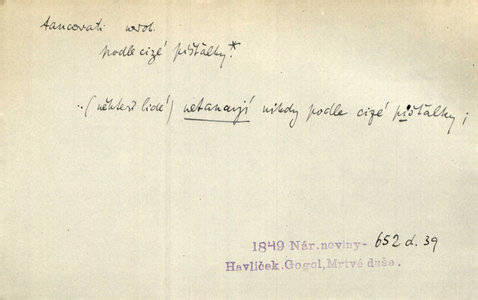 tancovati
podle cizé píšťalky.*
..(někteří lidé) netancují nikdy podle cizé píšťalky;
1849 Nár.noviny- 652 d. 39
Havlíček.Gogol,Mrtvé duše.